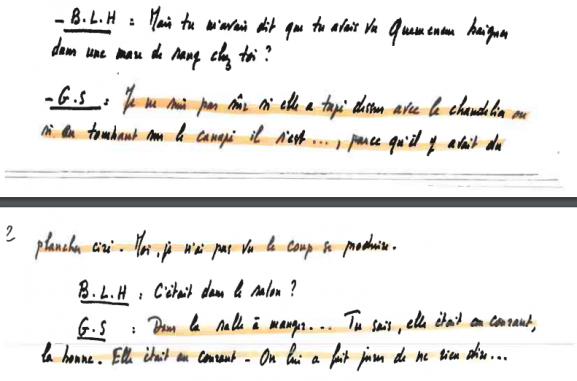 - B.L.H : Mais tu m'avais dit que tu avais vu Quemeneur baigner
dans une mare de sang chez toi ?
- G.S : Je ne suis pas sûr si elle a tapé dessus avec le chandelier ou
si en tombant sur le canapé il s'est ..., parce qu'il y avait du
2
plancher ciré. Moi, je n'ai pas vu le coup se produire.
B.L.H : C'était dans le salon ?
G.S : Dans la salle à manger... Tu sais, elle était au courant,
la bonne. Elle était au courant - On lui a fait jurer de ne rien dire...